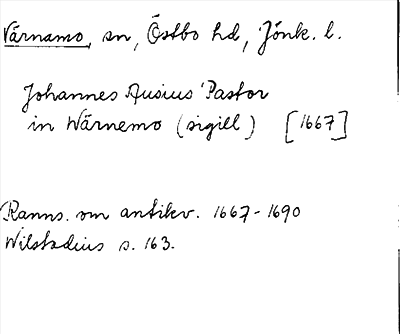 Värnamo, sn, Östbo hd, Jönk. l.
Johannes Ausius Pastor
in Wärnemo (sigill) [1667]
Ranns. om antikv. 1667-1690
Wilstadius s. 163.